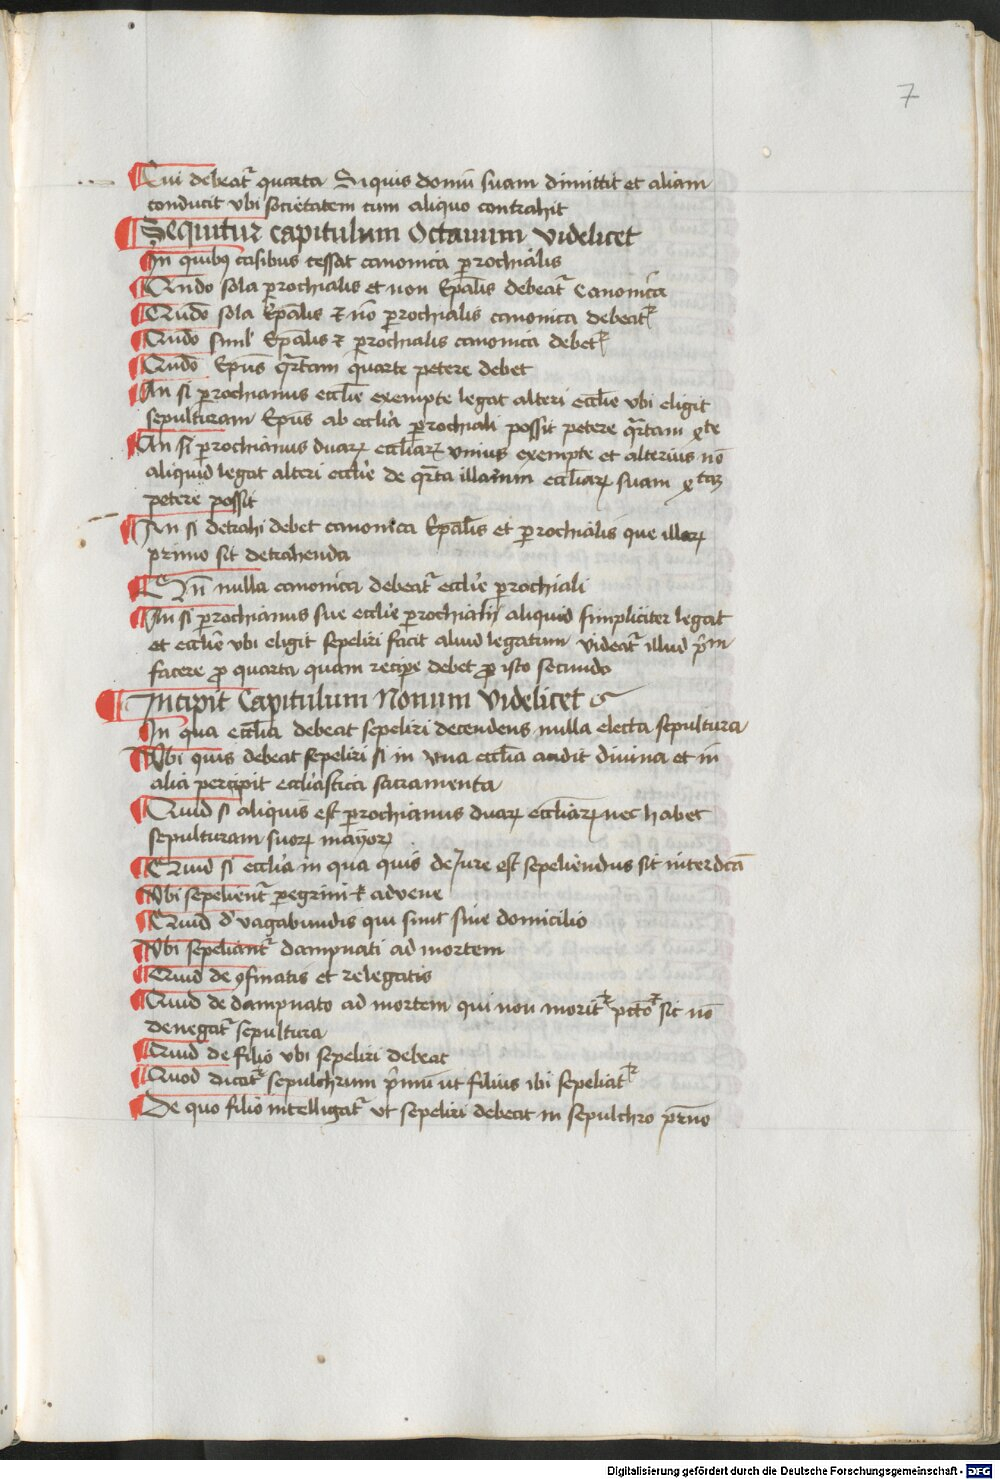 7
Cui debeat᷑ quarta Si quis domū suam dimittit et aliam
conducit vbi societatem cum aliquo contrahit
Sequitur capitulum Octauum videlicet
In quibꝯ casibus cessat canonica ꝑrochialis
Qn̄do sola ꝑrochialis et non Ep̄alis debeat᷑ Canonica
Qn̄do sola Ep̄alis et nō ꝑrochialis canonica debeat᷑
Qn̄do simul Ep̄alis et ꝑrochialis canonica debet᷑
Qn̄do Ep̄us q̄rtam quarte petere debet
An si ꝑrochianus eccl̄ie exempte legat alteri eccl̄ie vbi eligit
sepulturam Ep̄us ab eccl̄ia ꝑrochiali possit petere q̄rtam
An si ꝑrochianus duaꝝ eccl̄iaꝝ vnius exempte et alterius nō
aliquid legat alteri eccl̄ie de q̄rta illarum eccl̄iaꝝ suam
petere possit
An si detrahi debet canonica Ep̄alis et ꝑrochialis que illaꝝ
primo sit detrahenda
Qn̄ nulla canonica debeat᷑ eccl̄ie ꝑrochiali
An si ꝑrochianus sue eccl̄ie ꝑrochiali aliquid simpliciter legat
et eccl̄ie vbi eligit sepeliri facit aliud legatum videat᷑ illud p̄m
facere ꝓ quarta quam recipe debet ꝓ isto secundo
Incipit Capitulum Nonum videlicet
In qua eccl̄ia debeat sepeliri decendens nulla electa sepultura
Vbi quis debeat sepeliri si in vna eccl̄ia audit diuina et in
alia percipit eccl̄iastica sacramenta
Quid si aliquis est ꝑrochianus duaꝝ eccl̄iaꝝ nec habet
sepulturam suoꝝ mayoꝝ
Quid si eccl̄ia in qua quis de Jure est sepeliendus sit interdc̄a
Vbi sepelient᷑ ꝑegrini et advene
Quid d' vagabundis qui sunt sine domicilio
Vbi sepeliant᷑ dampnati ad mortem
Quid de ꝯfinatis et relegatis
Quid de dampnato ad mortem qui non morit᷑ sit nō
denegat᷑ sepultura
Quid de filio vbi sepeliri debeat
Quod dicat᷑ sepulchrum p̄rnū ut filius ibi sepeliat᷑
De quo filio intelligat᷑ ut sepeliri debeat in sepulchro p̄rno
Digitalisierung gefördert durch die Deutsche Forschungsgemeinschaft - DFG